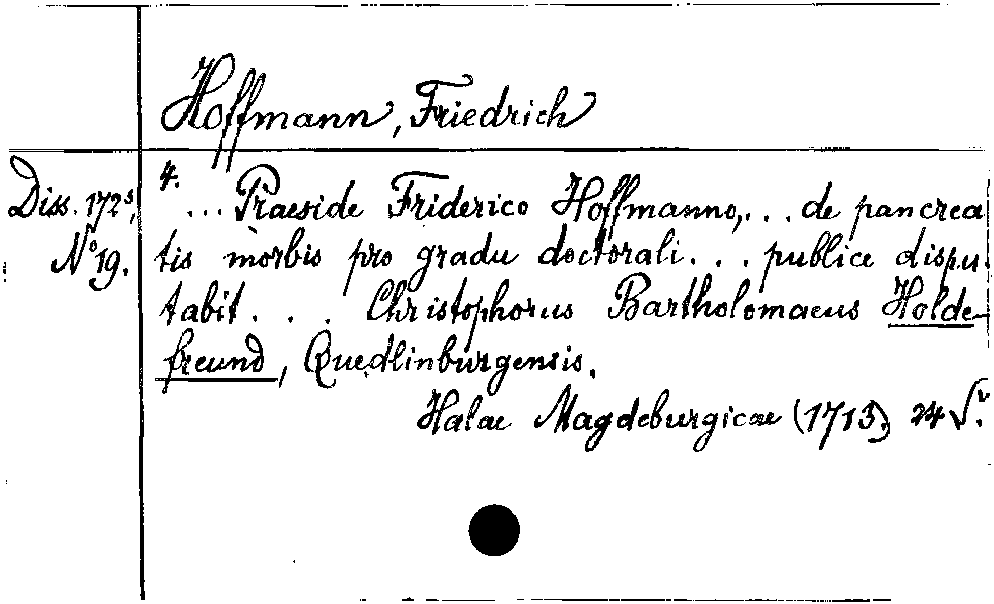 Hoffmann, Friedrich
Diss. 172³,
Nº 19.
4.
... Praeside Friderico Hoffmanno,... de pancrea
tis morbis pro gradu doctorali... publice dispu-
tabit.... Christophorus Bartholomaeus Holde-
freund, Quedlinburgensis.
Halae Magdeburgicae (1713) 24